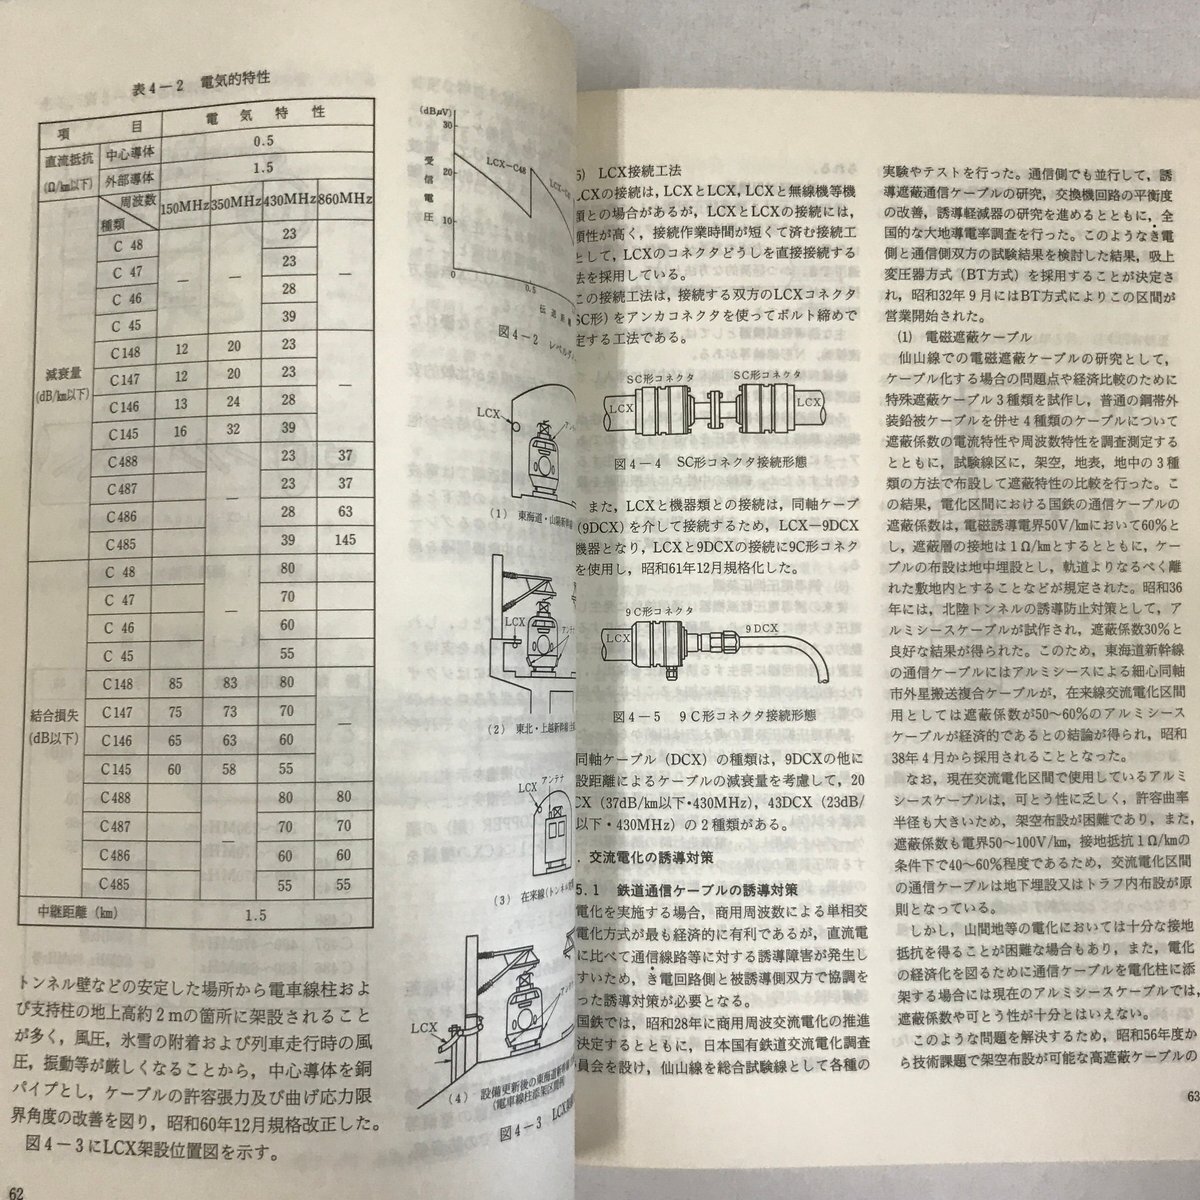 表4－2　電気的特性
項　目　電　気　特　性
直流抵抗(Ω/km以下)　中心導体　0.5
外部導体　1.5
周波数
種類　150MHz　350MHz　430MHz　860MHz
減衰量(dB/km以下)
C 48　－　－　23　－
C 47　23
C 46　28
C 45　39
C148　12　20　23　－
C147　12　20　23
C146　13　24　28
C145　16　32　39
C488　－　23　37
C487　23　37
C486　28　63
C485　39　145
結合損失(dB以下)
C 48　－　80　－
C 47　70
C 46　60
C 45　55
C148　85　83　80
C147　75　73　70
C146　65　63　60
C145　60　58　55
C488　－　－　80　80
C487　70　70
C486　60　60
C485　55　55
中継距離（km）　1.5
トンネル壁などの安定した場所から電車線柱およ
び支持柱の地上高約2mの箇所に架設されること
が多く，風圧，氷雪の附着および列車走行時の風
圧，振動等が厳しくなることから，中心導体を銅
パイプとし，ケーブルの許容張力及び曲げ応力限
界角度の改善を図り，昭和60年12月規格改正した。
図4－3にLCX架設位置図を示す。
62
(dBμV)
30
20
10
0
受信電圧
LCX-C48
0.5
伝送距離
図4－2　レベルダ
LCX
アンテ
(1)　東海道・山陽新幹線
LCX
アンテ
(2)　東北・上越新幹線
LCX
アンテナ
(3)　在来線(トンネル
LCX
アンテナ
(4)　設備更新後の東海道新幹線
(電車線柱添架区間例)
図4－3　LCX
5)　LCX接続工法
LCXの接続は，LCXとLCX，LCXと無線機等機
類との場合があるが，LCXとLCXの接続には，
頼性が高く，接続作業時間が短くて済む接続工
として，LCXのコネクタどうしを直接接続する
法を採用している。
この接続工法は，接続する双方のLCXコネクタ
SC形）をアンカコネクタを使ってボルト締めで
定する工法である。
SC形コネクタ　SC形コネクタ
LCX　LCX
図4－4　SC形コネクタ接続形態
また，LCXと機器類との接続は，同軸ケーブ
(9DCX）を介して接続するため，LCX－9DCX
機器となり，LCXと9DCXの接続に9C形コネク
を使用し，昭和61年12月規格化した。
9C形コネクタ
LCX　9DCX
図4－5　9C形コネクタ接続形態
同軸ケーブル（DCX）の種類は，9DCXの他に
設距離によるケーブルの減衰量を考慮して，20
CX（37dB/km以下・430MHz），43DCX（23dB/
以下・430MHz）の2種類がある。
．交流電化の誘導対策
5．1　鉄道通信ケーブルの誘導対策
電化を実施する場合，商用周波数による単相交
電化方式が最も経済的に有利であるが，直流電
に比べて通信線路等に対する誘導障害が発生し
すいため，き電回路側と被誘導側双方で協調を
った誘導対策が必要となる。
国鉄では，昭和28年に商用周波交流電化の推進
決定するとともに，日本国有鉄道交流電化調査
員会を設け，仙山線を総合試験線として各種の
実験やテストを行った。通信側でも並行して，誘
導遮蔽通信ケーブルの研究，交換機回路の平衡度
の改善，誘導軽減器の研究を進めるとともに，全
国的な大地導電率調査を行った。このようなき電
側と通信側双方の試験結果を検討した結果，吸上
変圧器方式（BT方式）を採用することが決定さ
れ，昭和32年9月にはBT方式によりこの区間が
営業開始された。
(1)　電磁遮蔽ケーブル
仙山線での電磁遮蔽ケーブルの研究として，
ケーブル化する場合の問題点や経済比較のために
特殊遮蔽ケーブル3種類を試作し，普通の鋼帯外
装鉛被ケーブルを併せ4種類のケーブルについて
遮蔽係数の電流特性や周波数特性を調査測定する
とともに，試験線区に，架空，地表，地中の3種
類の方法で布設して遮蔽特性の比較を行った。こ
の結果，電化区間における国鉄の通信ケーブルの
遮蔽係数は，電磁誘導電界50V/kmにおいて60％と
し，遮蔽層の接地は1Ω/kmとするとともに，ケー
ブルの布設は地中埋設とし，軌道よりなるべく離
れた敷地内とすることなどが規定された。昭和36
年には，北陸トンネルの誘導防止対策として，ア
ルミシースケーブルが試作され，遮蔽係数30％と
良好な結果が得られた。このため，東海道新幹線
の通信ケーブルにはアルミシースによる細心同軸
市外星搬送複合ケーブルが，在来線交流電化区間
用としては遮蔽係数が50～60％のアルミシース
ケーブルが経済的であるとの結論が得られ，昭和
38年4月から採用されることとなった。
なお，現在交流電化区間で使用しているアルミ
シースケーブルは，可とう性に乏しく，許容曲率
半径も大きいため，架空布設が困難であり，また，
遮蔽係数も電界50～100V/km，接地抵抗1Ω/kmの
条件下で40～60％程度であるため，交流電化区間
の通信ケーブルは地下埋設又はトラフ内布設が原
則となっている。
しかし，山間地等の電化においては十分な接地
抵抗を得ることが困難な場合もあり，また，電化
の経済化を図るために通信ケーブルを電化柱に添
架する場合には現在のアルミシースケーブルでは，
遮蔽係数や可とう性が十分とはいえない。
このような問題を解決するため，昭和56年度か
ら技術課題で架空布設が可能な高遮蔽ケーブルの
63